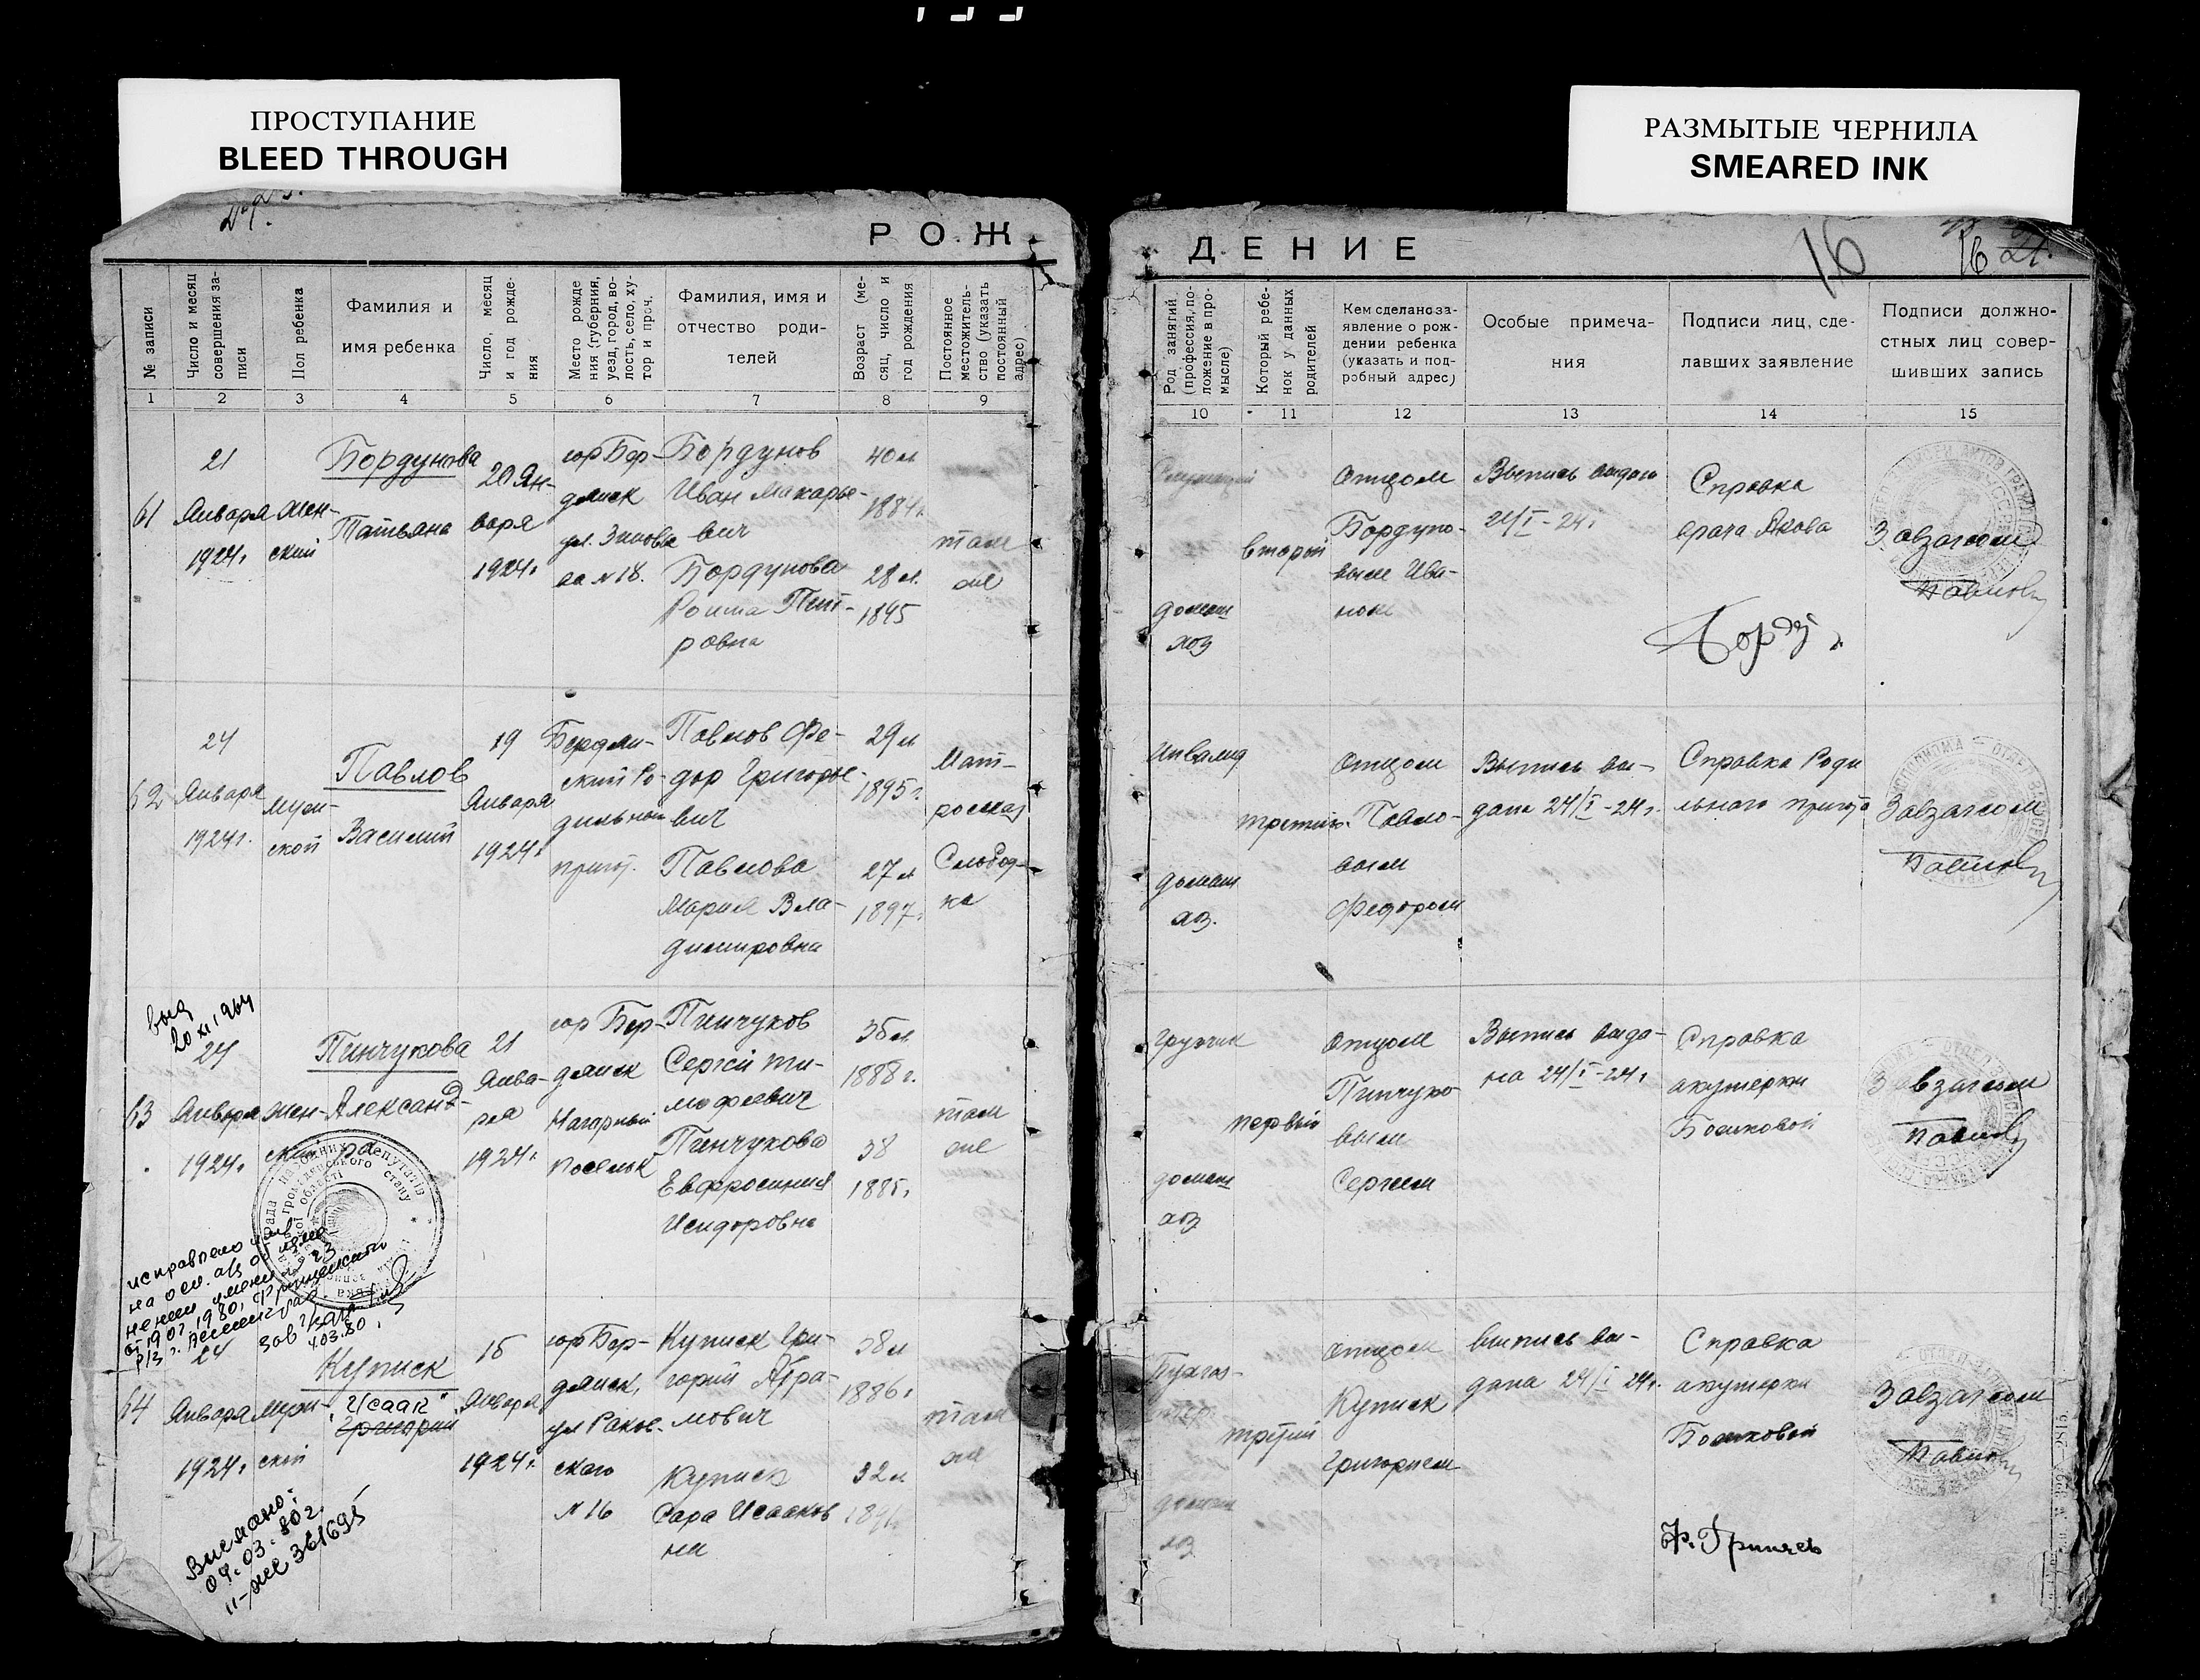 ПРОСТУПАНИЕ
BLEED THROUGH
РАЗМЫТЫЕ ЧЕРНИЛА
SMEARED INK
РОЖ
ДЕНИЕ
16
16
№ записи
Число и месяц совершения за-
писи
Пол ребенка
Фамилия и
имя ребенка
Число, месяц
и год рожде-
ния
Место рожде
ния (губерния,
уезд, город, во-
лость, село, ху-
тор и проч.
Фамилия, имя и
отчество роди-
телей
Возраст (ме-
сяц, число и
год рождения
Постоянное
местожитель-
ство (указать
постоянный
адрес)
Род занятий
(профессия, по-
ложение в про-
мысле)
Который ребе-
нок у данных
родителей
Кем сделано за-
явление о рож-
дении ребенка
(указать и под-
робный адрес)
Особые примеча-
ния
Подписи лиц, сде-
лавших заявление
Подписи должно-
стных лиц совер-
шивших запись
1 2 3 4 5 6 7 8 9
10 11 12 13 14 15
61
21
Января
1924г
Жен-
ский
Бордунова
Татьяна
20 Ян-
варя
1924г
гор Бер-
дянск
№ 18.
Бордунов
Иван Макарье-
вич
Бордунова
ровна
40 л
1884г.
28 л.
1895
там
же
Служащий
домаш
хоз
второй
отцом
Бордуно-
вым Ива-
ном
Выпись выдана
24/I-24г
Справка
врача Якова
Завзагсом
62
24
Января
1924г.
Муж-
ской
Павлов
Василий
19
Января
1924г
Бердян-
ский Ро-
дильный
приют.
Павлов Фе-
дор Григорье-
вич
Павлова
Мария Вла-
димировна
29 л
1895г.
27 л
1897г
Мат-
росская
Слобод-
ка
Инвалид
домаш
хоз.
третий
отцом
Павло-
вым
Федором
Выпись вы-
дана 24/I-24г.
Справка Роди
льного приюта
Завзагсом
выд
20 XI 1964
63
24
Января
1924г.
Жен-
ский
Пинчукова
Александ-
ра
21
Янва-
ря
1924г.
гор Бер-
дянск
Нагорный
поселок
Пинчуков
Сергей Ти-
мофеевич
Пинчукова
Евфросиния
Исидоровна
35 л
1888г.
38
1885г
там
же
грузчик
домаш
хоз
первый
отцом
Пинчуко
вым
Сергеем
Выпись выда-
на 24/I-24г
Справка
акушерки
Божковой
Завзагсом
исправлено имя
на осн. а/з об изме-
нении имени № 23
403.80
64
24
Января
1924г
муж-
ской
Куписк
"Исаак"
Григорий
15
Января
1924г.
гор Бер-
дянск,
ул Раков-
ского
№ 16
Куписк Гри-
горий Абра-
мович
Куписк
Сара Исааков
на
38 л
1886г
32 л
там
же
домаш
хоз
третий
отцом
Куписк
Григорием
выпись вы-
дана 24/I 24г.
Справка
акушерки
Божковой
Завзагсом
04.03.80г.
II-ЖС 361695